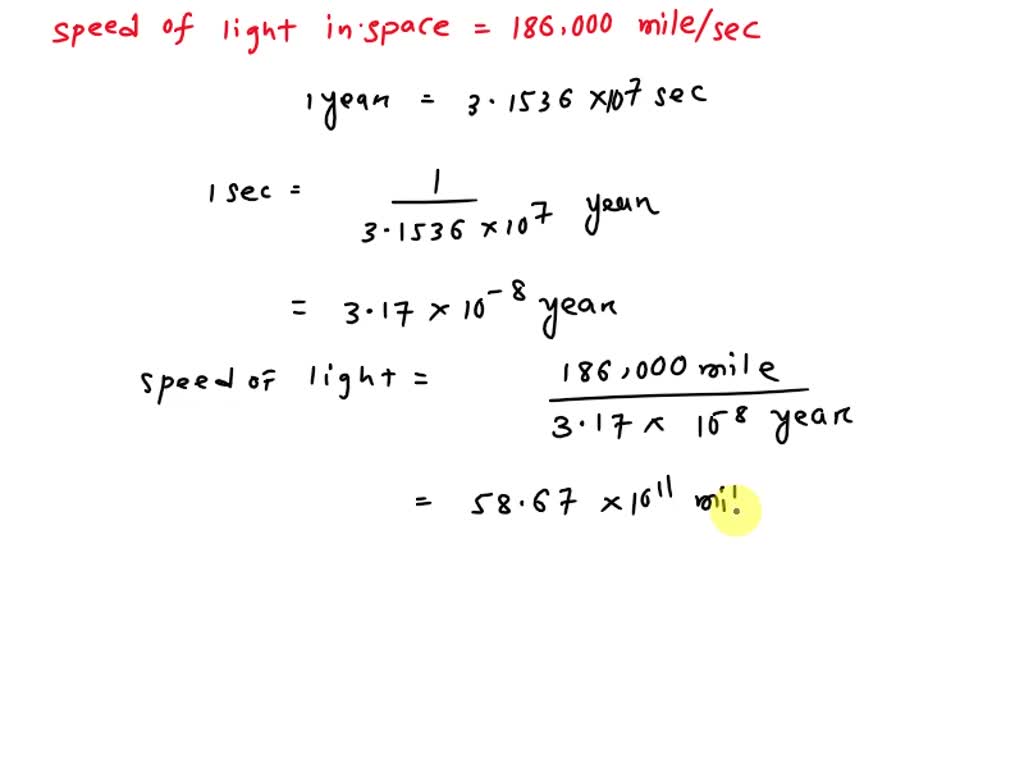 speed of light in space = 186,000 mile/sec
1 year = 3.1536 × 10⁷ sec
1 sec = 1 / 3.1536 × 10⁷ year
= 3.17 × 10⁻⁸ year
speed of light = 186,000 mile / 3.17 × 10⁻⁸ year
= 58.67 × 10¹¹ mi